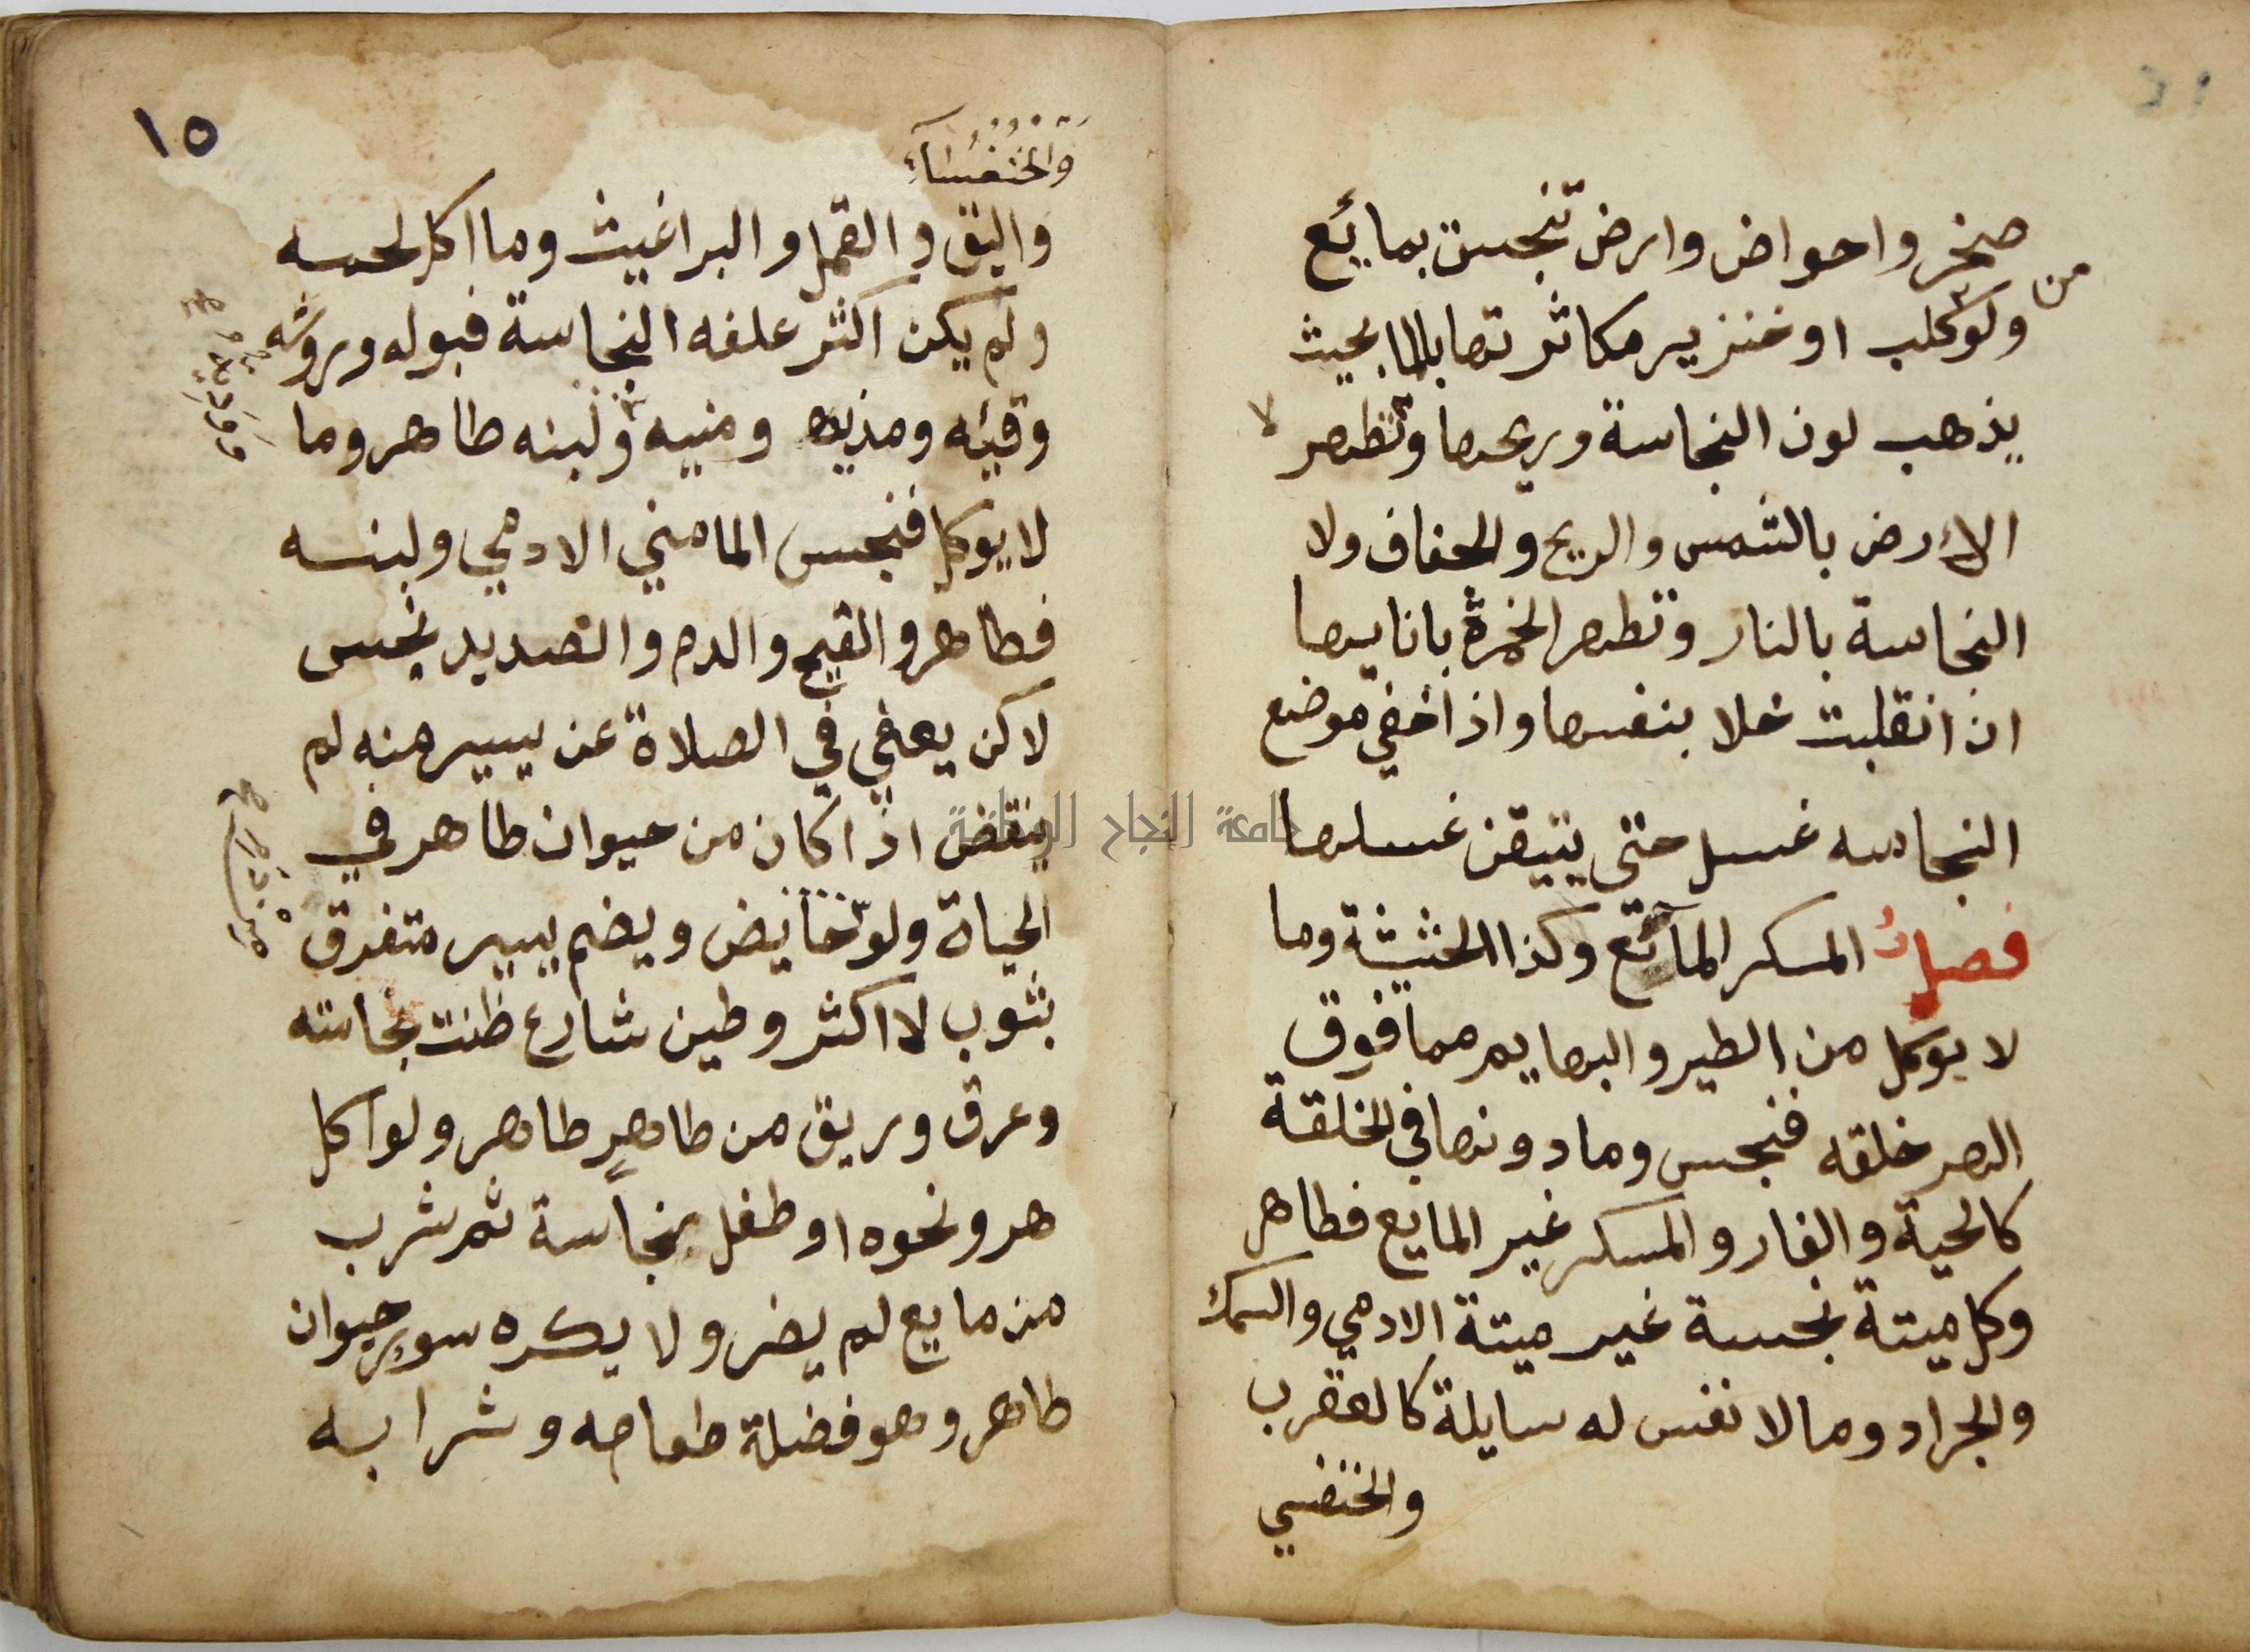 صخر واحواض وارض تنجست بمائع
من
ولو كلب او خنزير مكاثرتها بالما بحيث
يذهب لون النجاسة وريحها وتطهر
لا
الارض بالشمس والريح والجفاف ولا
النجاسة بالنار وتطهر الخمرة بانايها
ان انقلبت خلا بنفسها واذا خفي موضع
النجاسه غسل حتي يتيقن غسلها
فصل المسكر المائع وكذا الحثيثة وما
لا يوكل من الطير والبهايم مما فوق
الهر خلقه فنجس وما دونها في الخلقة
كالحية والفار والمسكر غير المايع فطاهر
وكل ميتة نجسة غير ميتة الادمي والسمك
والجراد وما لا نفس له سايلة كالعقرب
والخنفسي
١٥
والخنفساء
والبق والقمل والبراغيث وما اكل لحمه
ولم يكن اكثر علفه النجاسة فبوله وروثه
وقيئه ومذيه ومنيه ولبنه طاهر وما
لا يوكل فنجس الا مني الادمي ولبنه
فطاهر والقيح والدم والصديد نجس
لاكن يعفي في الصلاة عن يسير منه لم
ينقض اذا كان من حيوان طاهر في
الحياة ولو حائض ويضم يسير متفرق
بثوب لا اكثر وطين شارع ظنت نجاسته
وعرق وريق من طاهر طاهر ولو اكل
هر ونحوه او طفل نجاسة ثم شرب
من مايع لم يضر ولا يكره سور حيوان
طاهر وهو فضلة طعامه وشرابه
جامعة النجاح الوطنية